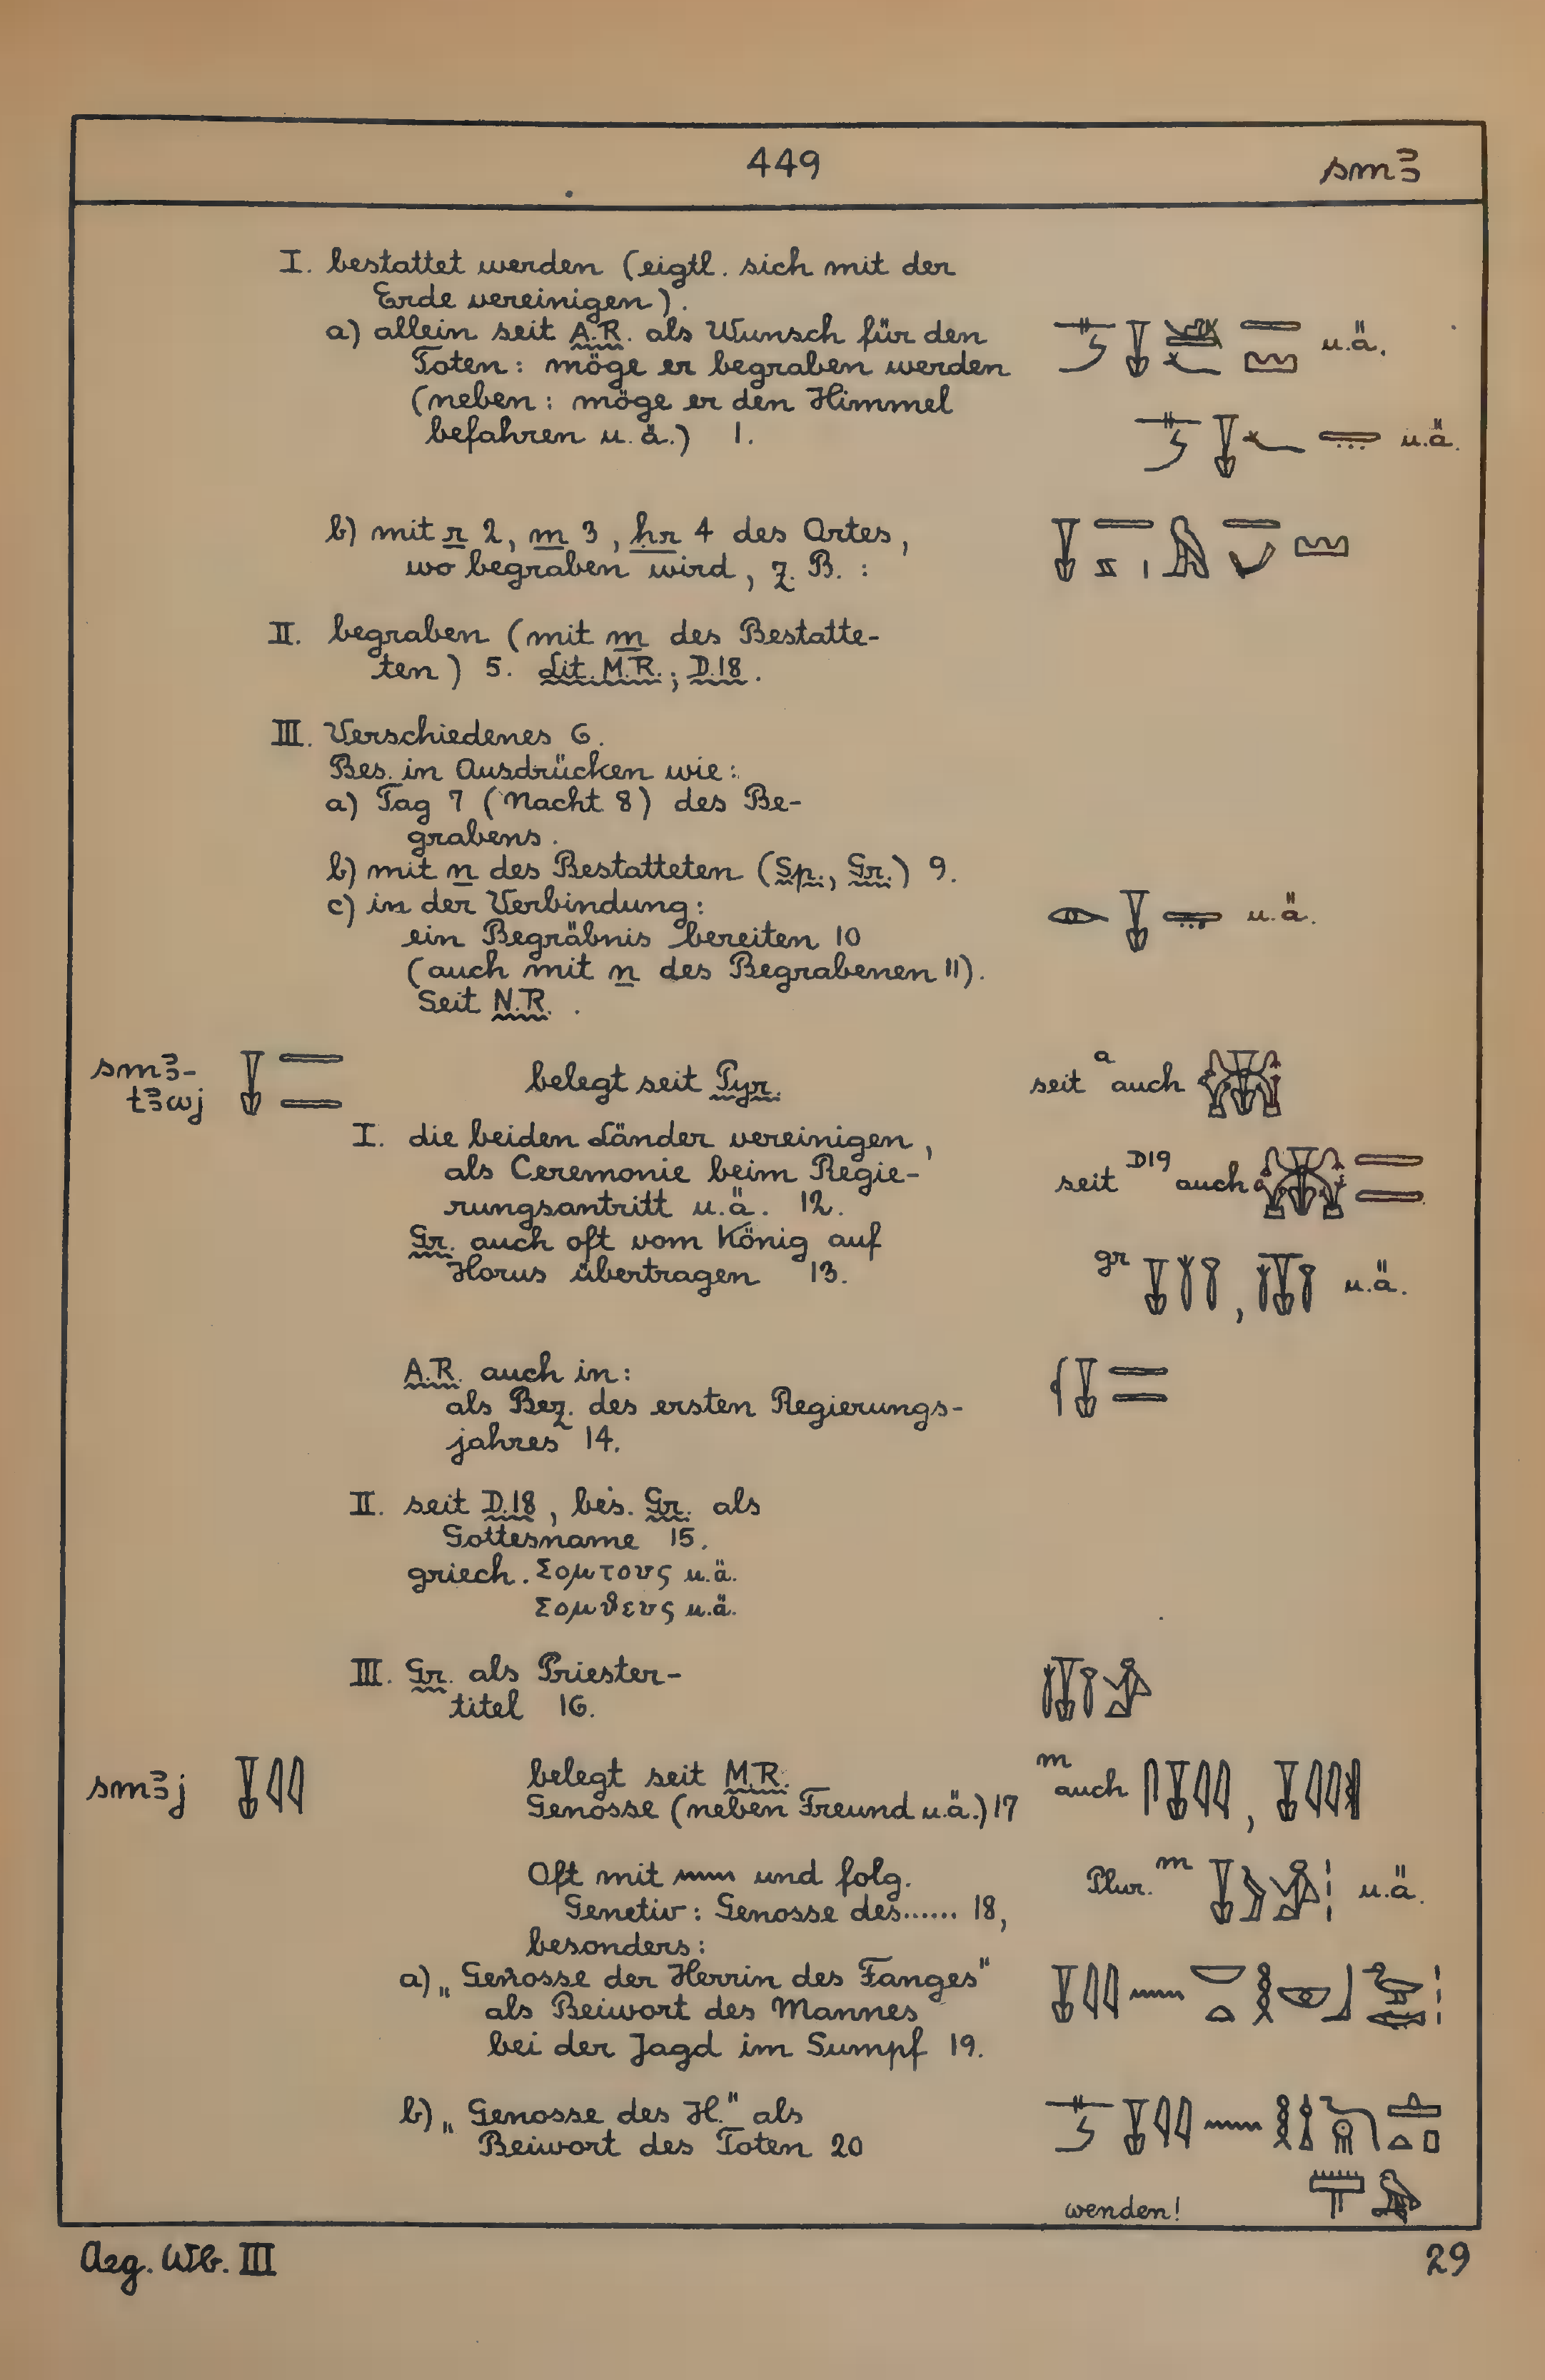 449
smꜣ
I. bestattet werden (eigtl. sich mit der
Erde vereinigen).
a) allein seit A.R. als Wunsch für den
Toten: möge er begraben werden
u.ä.
(neben: möge er den Himmel
befahren u.ä.) 1.
u.ä.
b) mit r 2, m 3, ḥr 4 des Ortes,
wo begraben wird, z.B.:
II. begraben (mit m des Bestatte-
ten) 5. Lit. M.R.; D.18.
III. Verschiedenes 6.
Bes. in Ausdrücken wie:
a) Tag 7 (Nacht 8) des Be-
grabens.
b) mit n des Bestatteten (Sp., Gr.) 9.
c) in der Verbindung:
u.ä.
ein Begräbnis bereiten 10
(auch mit n des Begrabenen 11).
Seit N.R.
smꜣ-
tꜣwj
belegt seit Pyr.
seit a auch
I. die beiden Länder vereinigen,
als Ceremonie beim Regie-
seit D19 auch
rungsantritt u.ä. 12.
Gr. auch oft vom König auf
Horus übertragen 13.
gr , u.ä.
A.R. auch in:
als Bez. des ersten Regierungs-
jahres 14.
II. seit D.18, bes. Gr. als
Gottesname 15.
griech. Σομτους u.ä.
Σομθευς u.ä.
III. Gr. als Priester-
titel 16.
smꜣj
belegt seit M.R.
Genosse (neben Freund u.ä.) 17
m auch ,
Oft mit 𓈖 und folg.
Genetiv: Genosse des...... 18,
Plur. m u.ä.
besonders:
a) „Genosse der Herrin des Fanges"
als Beiwort des Mannes
bei der Jagd im Sumpf 19.
b) „Genosse des H." als
Beiwort des Toten 20
wenden!
Aeg. Wb. III
29